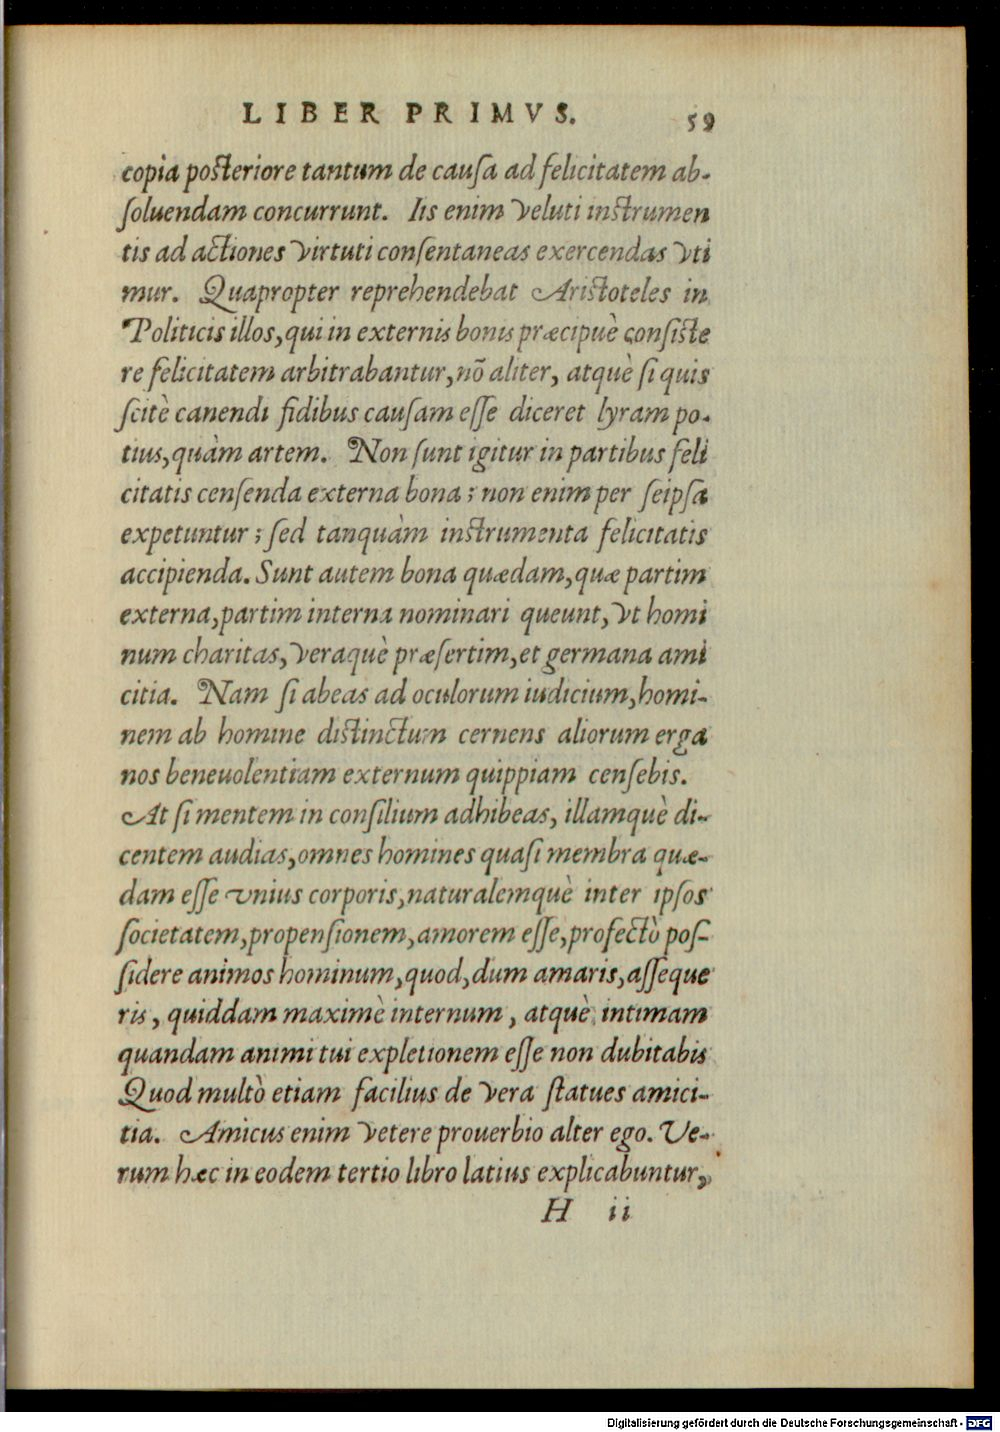 LIBER PRIMVS. 59
copia posteriore tantum de causa ad felicitatem ab-
soluendam concurrunt. Iis enim veluti instrumen
tis ad actiones virtuti consentaneas exercendas vti
mur. Quapropter reprehendebat Aristoteles in
Politicis illos, qui in externis bonis præcipuè consiste
re felicitatem arbitrabantur, nõ aliter, atquè si quis
scitè canendi fidibus causam esse diceret lyram po-
tius, quàm artem. Non sunt igitur in partibus feli
citatis censenda externa bona; non enim per seipsa
expetuntur; sed tanquàm instrumenta felicitatis
accipienda. Sunt autem bona quædam, quæ partim
externa, partim interna nominari queunt, vt homi
num charitas, veraquè præsertim, et germana ami
citia. Nam si abeas ad oculorum iudicium, homi-
nem ab homine distinctum cernens aliorum erga
nos beneuolentiam externum quippiam censebis.
At si mentem in consilium adhibeas, illamquè di-
centem audias, omnes homines quasi membra quæ-
dam esse vnius corporis, naturalemquè inter ipsos
societatem, propensionem, amorem esse, profectò pos-
sidere animos hominum, quod, dum amaris, asseque
ris, quiddam maximè internum, atquè intimam
quandam animi tui expletionem esse non dubitabis
Quod multò etiam facilius de vera statues amici-
tia. Amicus enim vetere prouerbio alter ego. Ve-
rum hæc in eodem tertio libro latius explicabuntur,
H ii
Digitalisierung gefördert durch die Deutsche Forschungsgemeinschaft - DFG